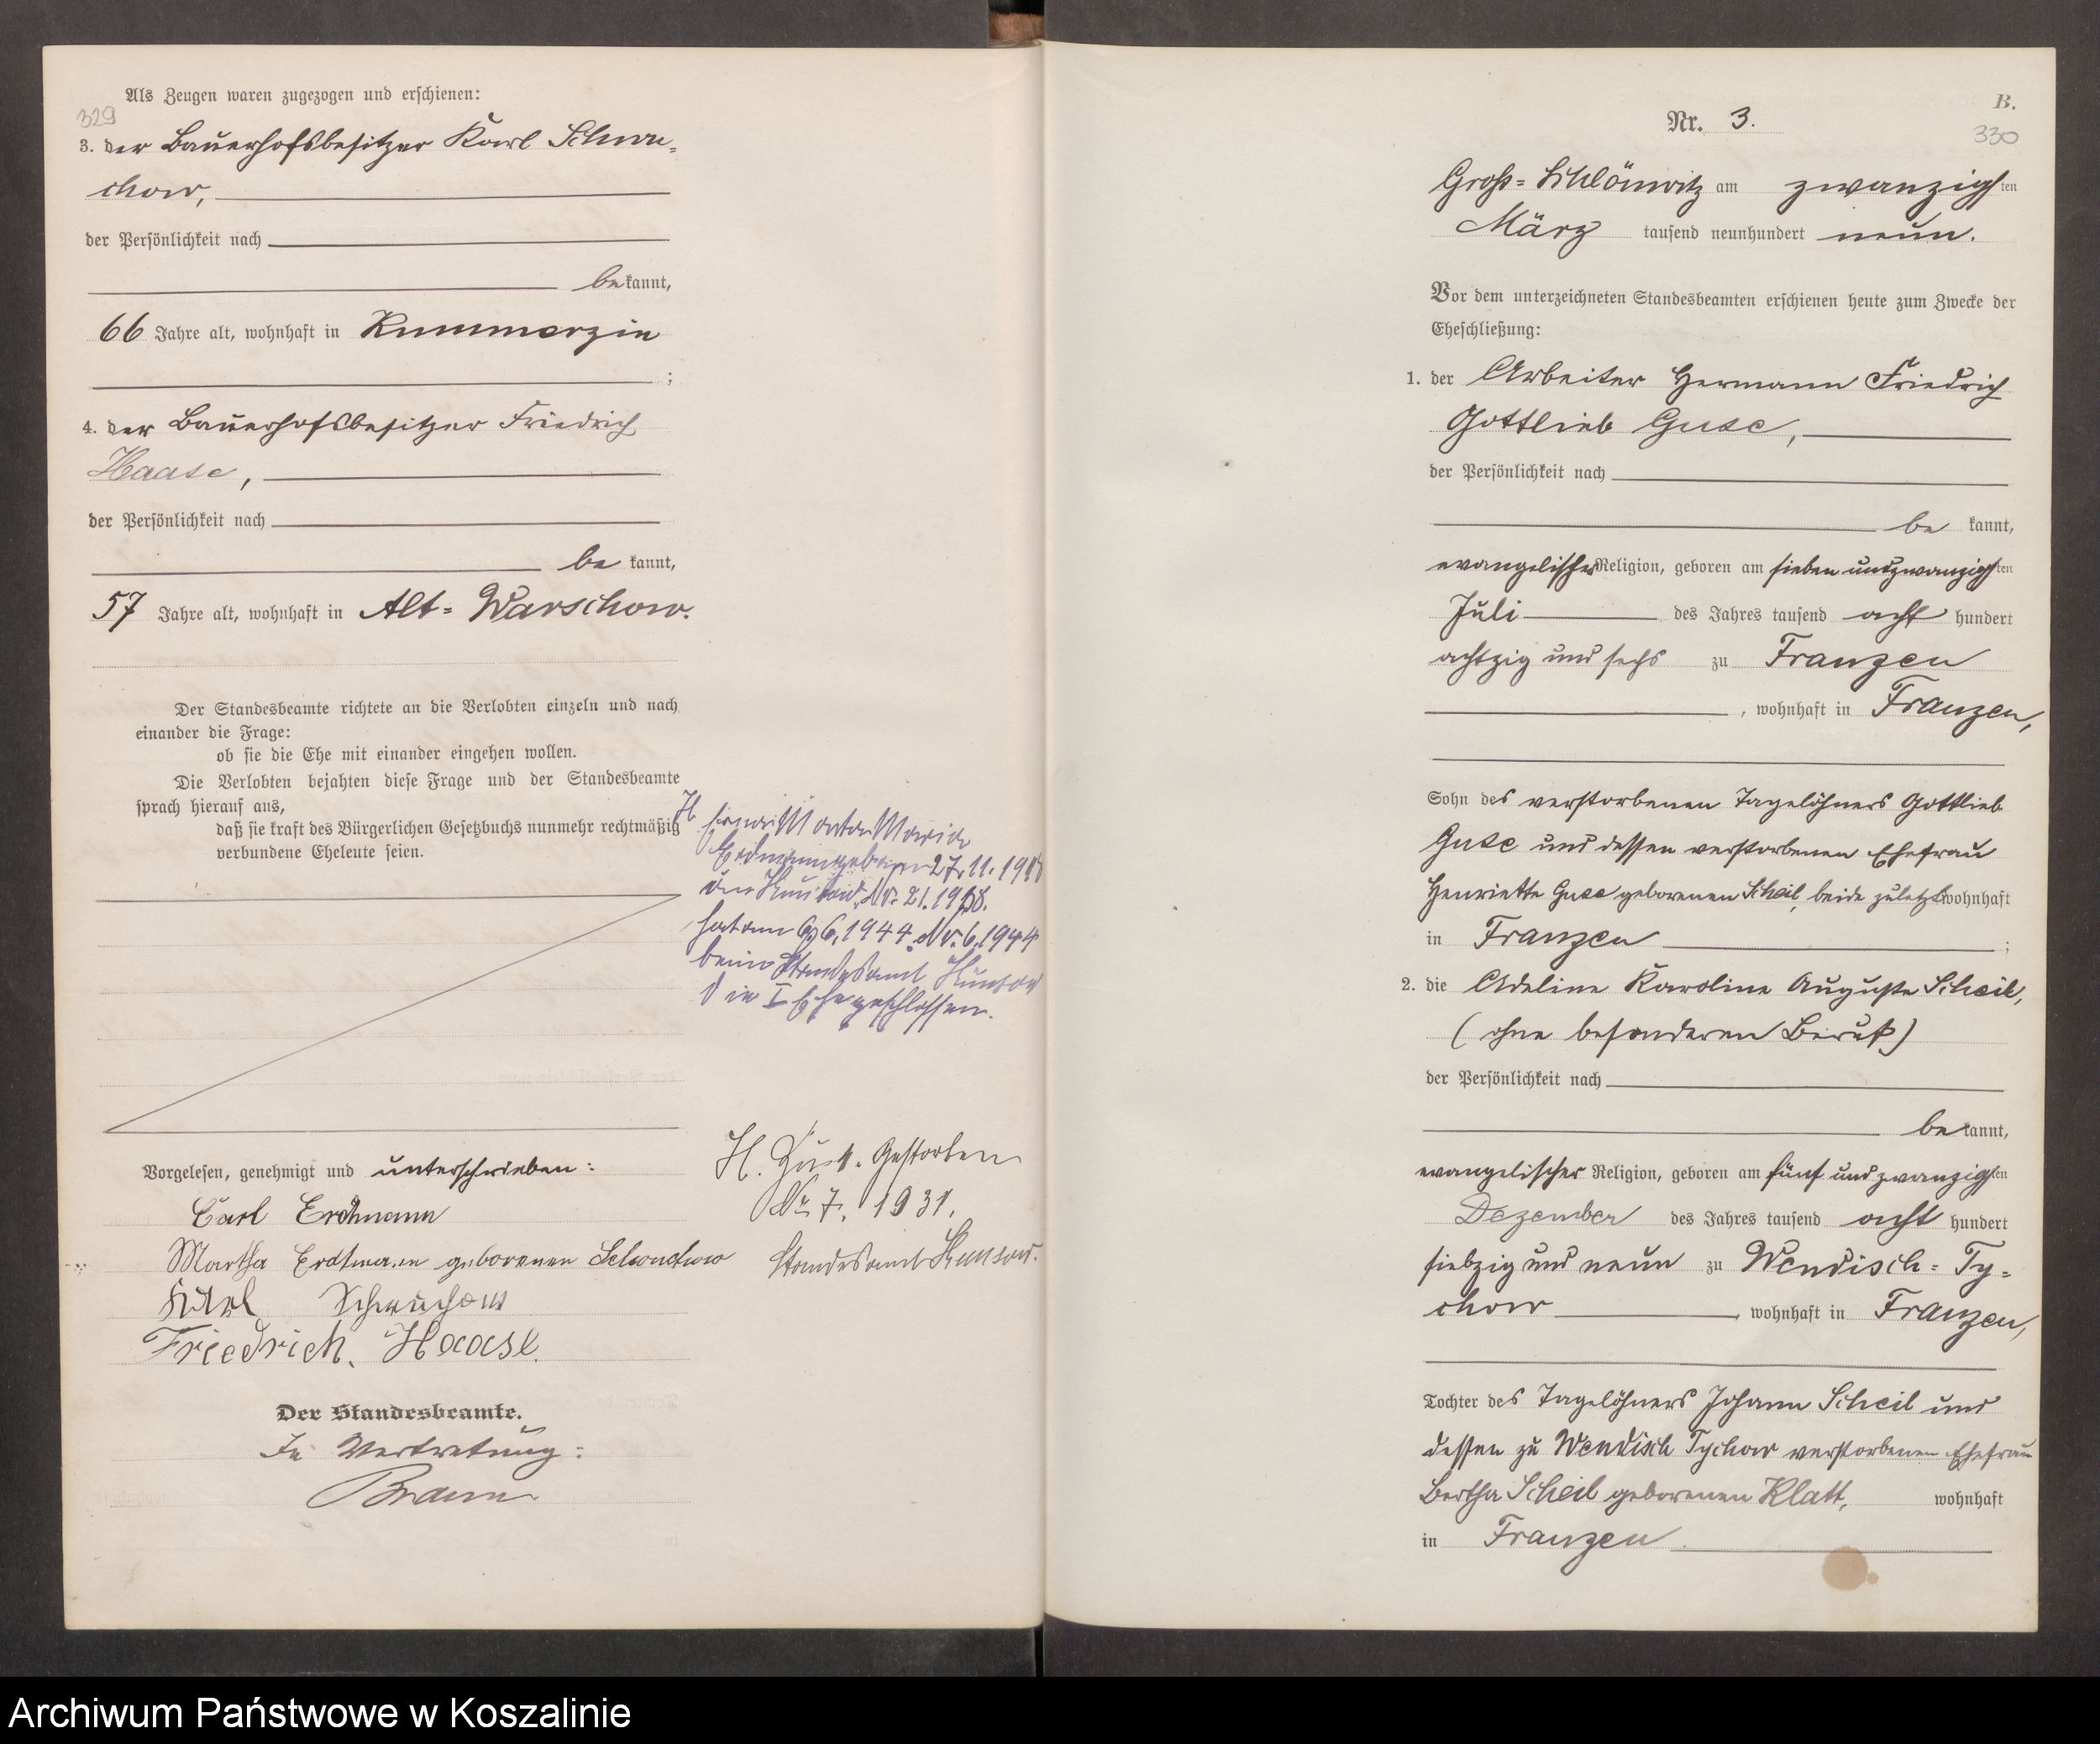 Als Zeugen waren zugezogen und erschienen:
329
3. der Bauerhofsbesitzer Karl Schwu-
chow,
der Persönlichkeit nach
bekannt,
66 Jahre alt, wohnhaft in Kummerzin
;
4. der Bauerhofsbesitzer Friedrich
Haase,
der Persönlichkeit nach
be kannt,
57 Jahre alt, wohnhaft in Alt-Warschow.
Der Standesbeamte richtete an die Verlobten einzeln und nach
einander die Frage:
ob sie die Ehe mit einander eingehen wollen.
Die Verlobten bejahten diese Frage und der Standesbeamte
sprach hierauf aus,
daß sie kraft des Bürgerlichen Gesetzbuchs nunmehr rechtmäßig
verbundene Eheleute seien.
Maria
Erdmann geboren 27.11.19
Nr. 21.19
hat am 6.1944 Nr. 6.1944
beim Standesamt
die I Ehe geschlossen.
H. Gestorben
Nr. 7. 1931.
Standesamt Kunsow.
Vorgelesen, genehmigt und unterschrieben:
Carl Erdmann
Martha Erdtmann geborenen Schwuchow
Karl Schwuchow
Friedrich. Haase.
Der Standesbeamte.
In Vertretung:
B.
Nr. 3.
330
Groß-Schlönwitz am zwanzigsten
März tausend neunhundert neun.
Vor dem unterzeichneten Standesbeamten erschienen heute zum Zwecke der
Eheschließung:
1. der Arbeiter Hermann Friedrich
Gottlieb Guse,
der Persönlichkeit nach
be kannt,
evangelischer Religion, geboren am sieben undzwanzigsten
Juli des Jahres tausend acht hundert
achtzig und sechs zu Franzen
, wohnhaft in Franzen,
Sohn des verstorbenen Tagelöhners Gottlieb
Guse und dessen verstorbenen Ehefrau
Henriette Guse geborenen Scheil, beide zuletzt wohnhaft
in Franzen ;
2. die Adeline Karoline Auguste Scheil,
(ohne besonderen Beruf)
der Persönlichkeit nach
bekannt,
evangelischer Religion, geboren am fünf und zwanzigsten
Dezember des Jahres tausend acht hundert
siebzig und neun zu Wendisch-Ty-
chow , wohnhaft in Franzen,
Tochter des Tagelöhners Johann Scheil und
dessen zu Wendisch Tychow verstorbenen Ehefrau
Bertha Scheil geborenen Klatt, wohnhaft
in Franzen
Archiwum Państwowe w Koszalinie